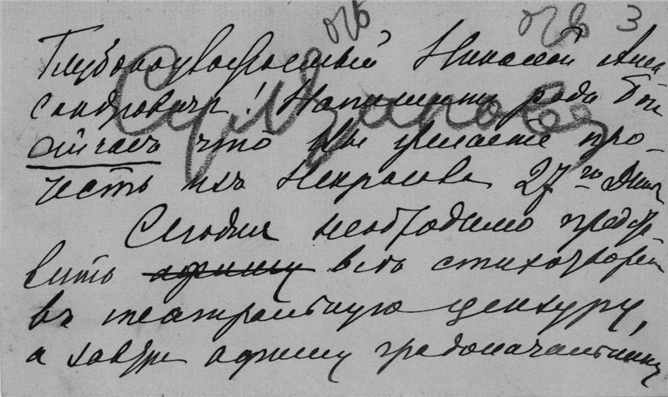 3
Глубокоуважаемый Николай Алек
сандровичъ! Напишите ради Бога
сейчасъ что Вы желаете про-
честь изъ Некрасова 27го Дек
Сегодня необходимо предъя
вить афишу всѣ стихотворен
въ театральную цензуру,
а завтра афишу градоначальнику